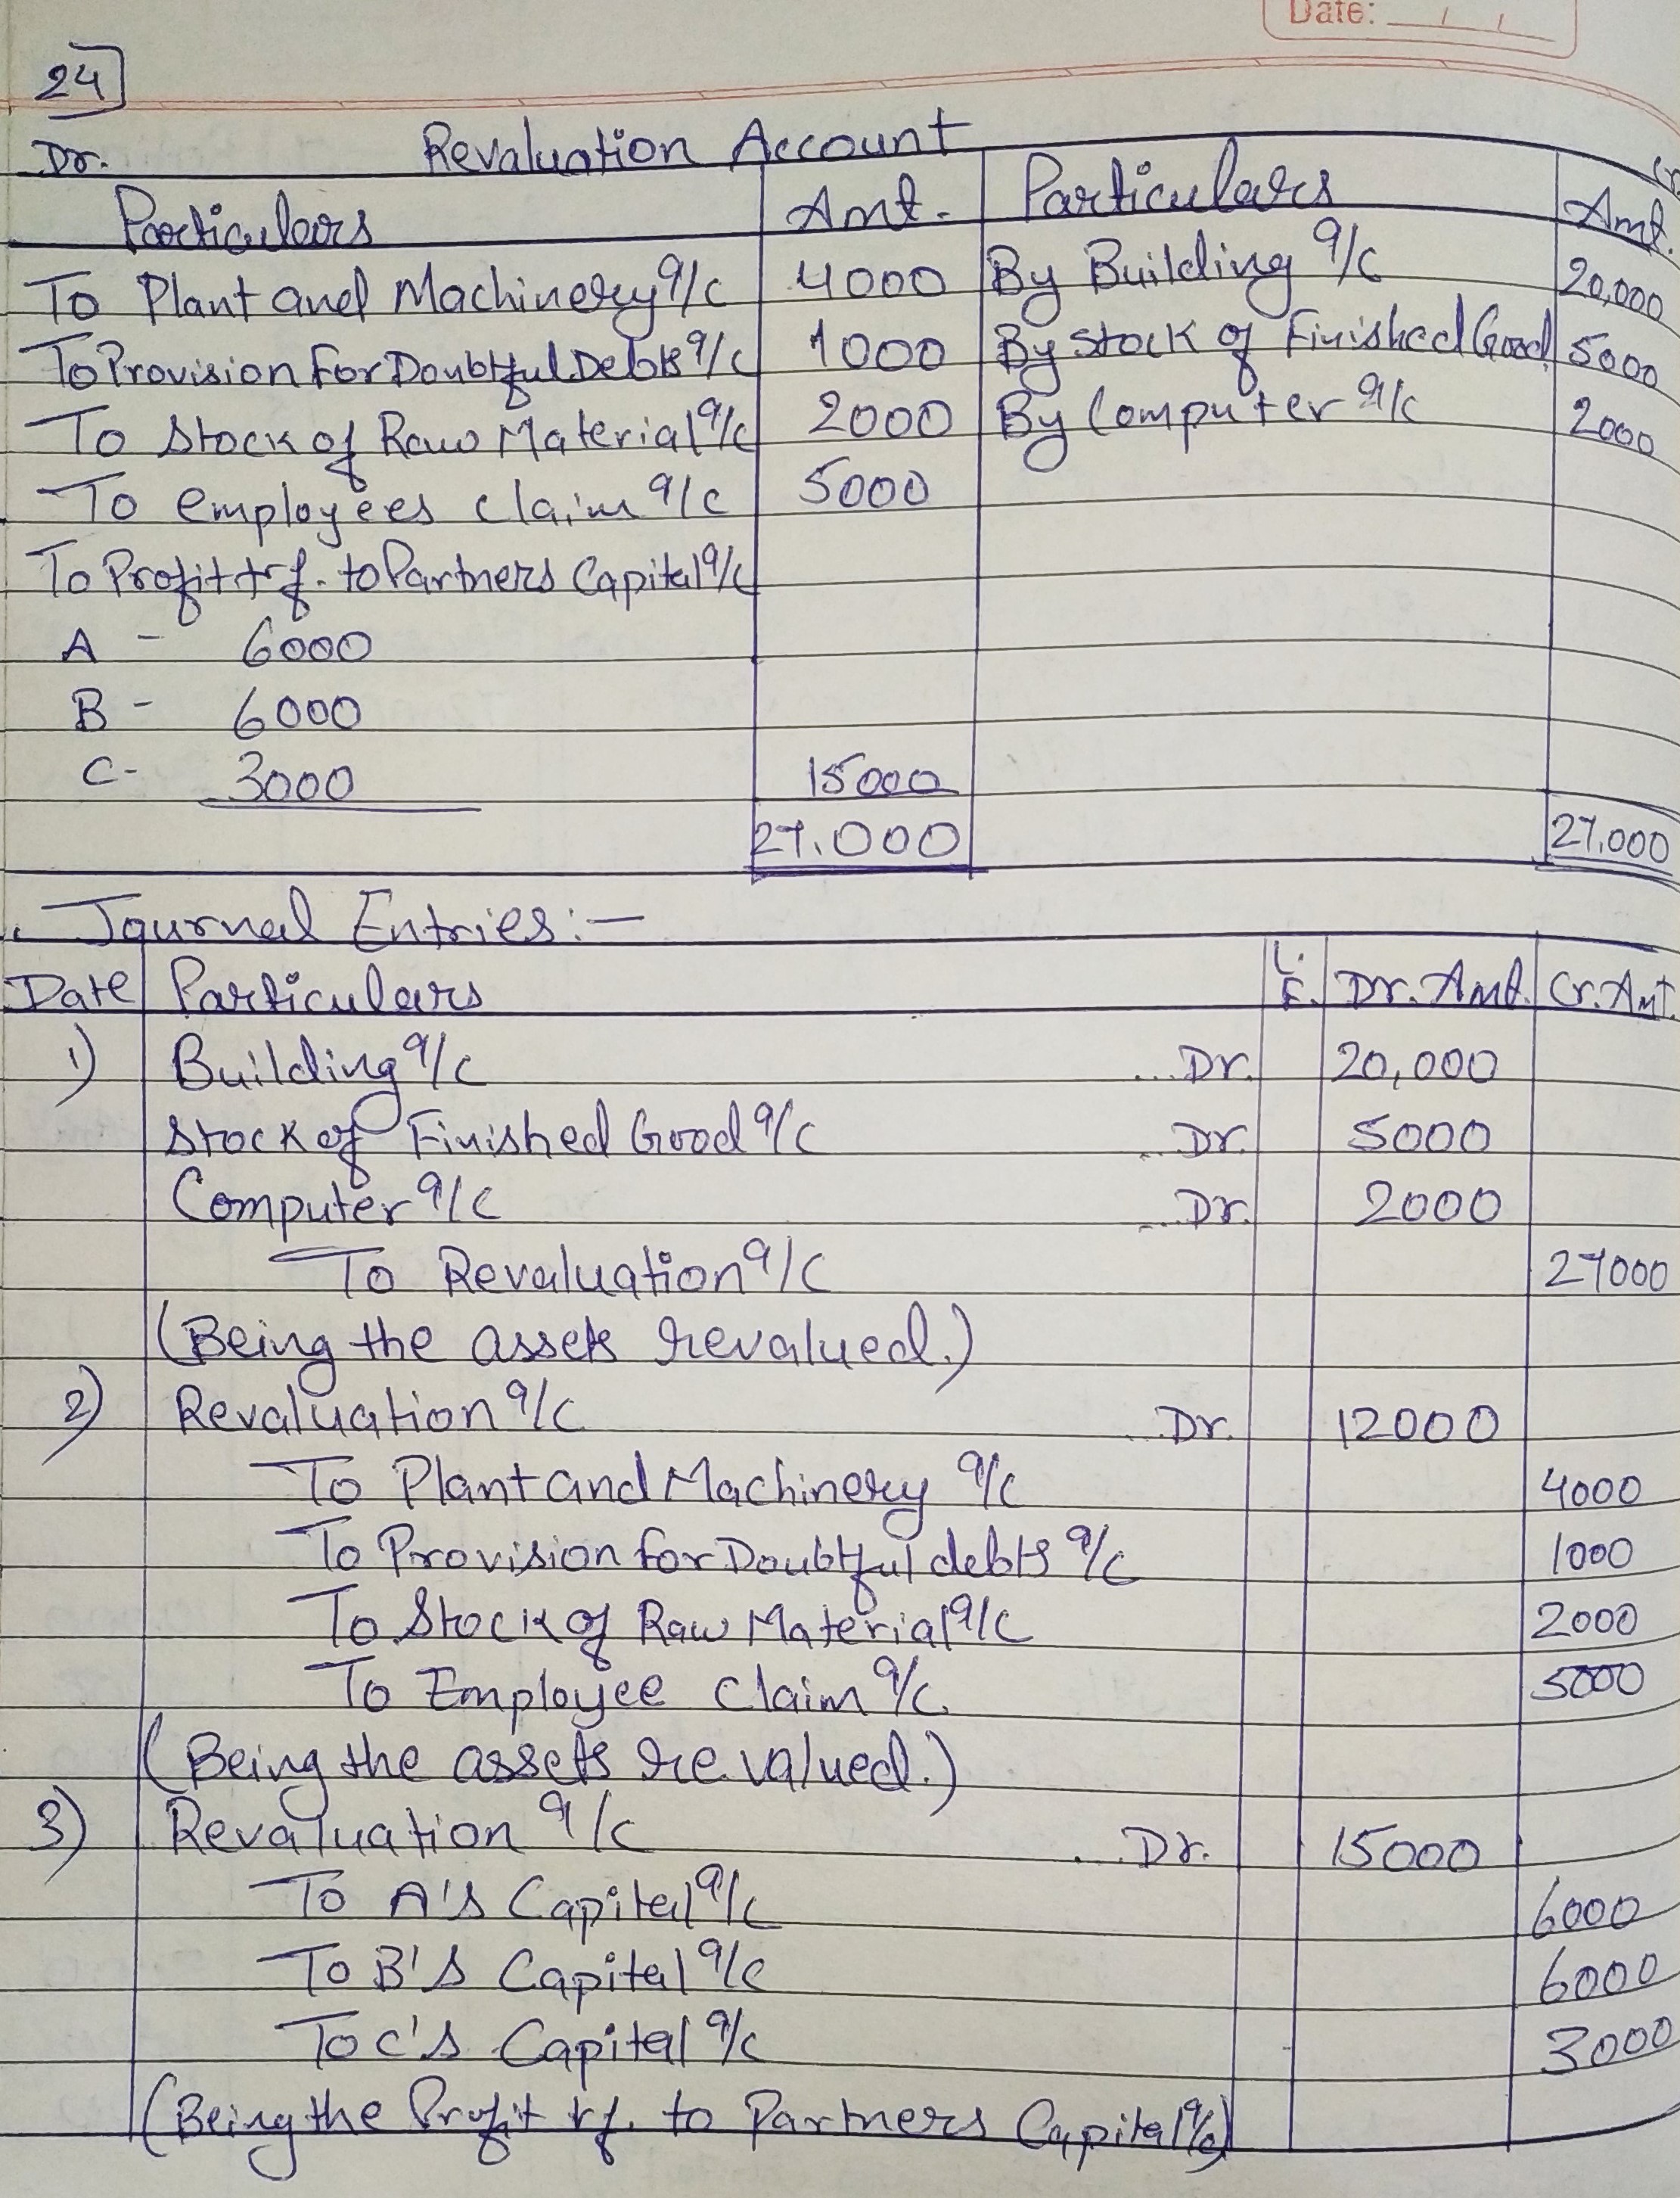 Date: / /
24
Dr. Revaluation Account Cr.
Particulars Amt. Particulars Amt.
To Plant and Machinery a/c 4000 By Building a/c 20,000
To Provision for Doubtful Debts a/c 1000 By Stock of Finished Good 5000
To Stock of Raw Material a/c 2000 By Computer a/c 2000
To employees claim a/c 5000
To Profit trf. to Partners Capital a/c
A - 6000
B - 6000
C - 3000 15000
27,000 27,000
Journal Entries:-
Date Particulars L.F. Dr. Amt. Cr. Amt.
1) Building a/c ... Dr. 20,000
Stock of Finished Good a/c ... Dr. 5000
Computer a/c ... Dr. 2000
To Revaluation a/c 27000
(Being the assets revalued.)
2) Revaluation a/c ... Dr. 12000
To Plant and Machinery a/c 4000
To Provision for Doubtful debts a/c 1000
To Stock of Raw Material a/c 2000
To Employee Claim a/c. 5000
(Being the assets revalued.)
3) Revaluation a/c ... Dr. 15000
To A's Capital a/c 6000
To B's Capital a/c 6000
To C's Capital a/c 3000
(Being the Profit trf. to Partners Capital a/c)